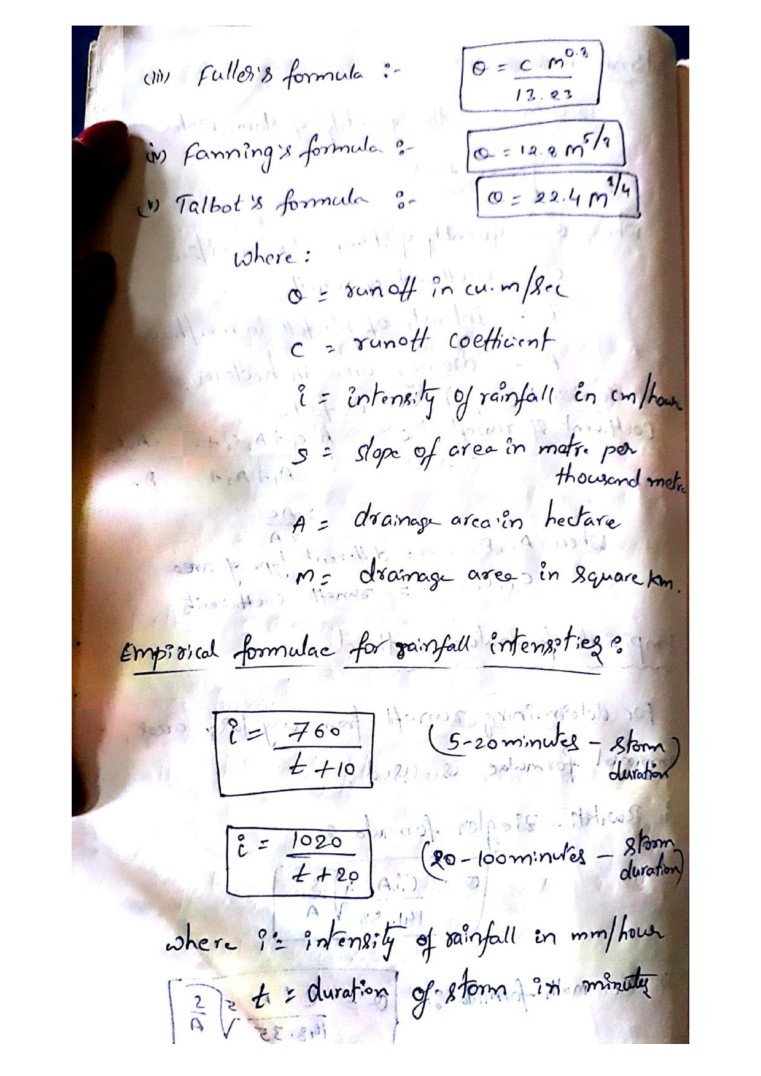 (iii) Fuller's formula :- Q = C M^0.8 / 13.23
iv) Fanning's formula :- Q = 12.8 M^5/8
(v) Talbot's formula :- Q = 22.4 M^1/4
where :
Q = runoff in cu.m/sec
C = runoff coefficient
i = intensity of rainfall in cm/hour
S = slope of area in metre per
thousand metre
A = drainage area in hectare
M = drainage area in square km.
Empirical formulae for rainfall intensities :
i = 760 / t + 10 (5-20 minutes - storm
duration)
i = 1020 / t + 20 (20-100 minutes - storm
duration)
where i = intensity of rainfall in mm/hour
t = duration of storm in minutes